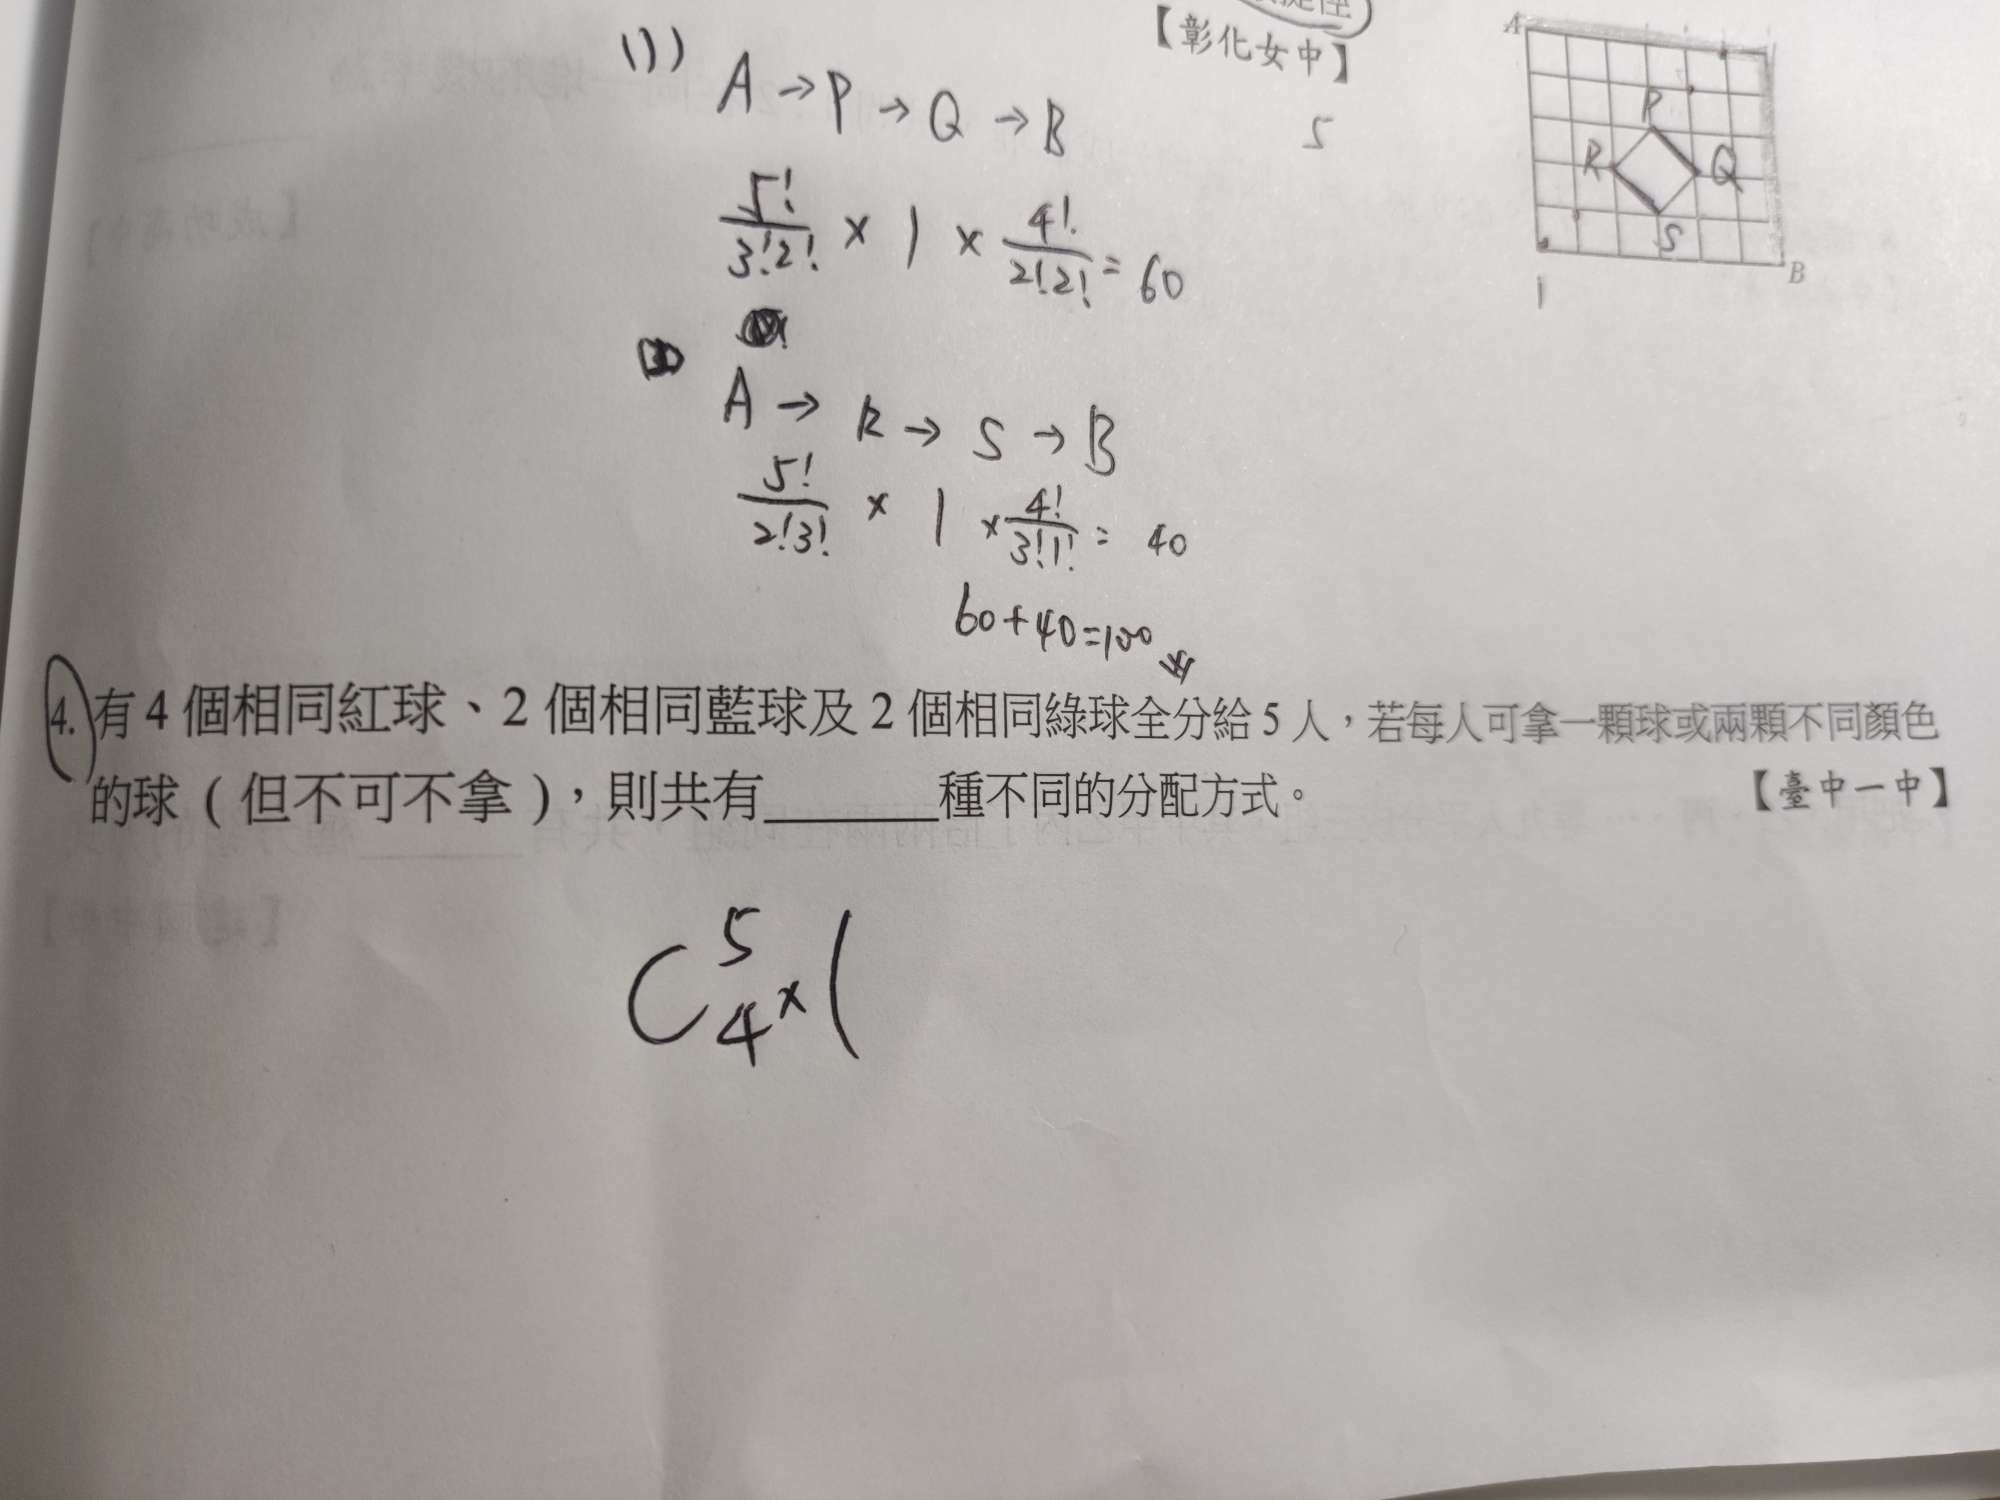 【彰化女中】
(1)
A → P → Q → B
5
5!/3!2! × 1 × 4!/2!2! = 60
A
P
R
Q
S
B
1
A → R → S → B
5!/2!3! × 1 × 4!/3!1! = 40
60+40=100
4. 有 4 個相同紅球、2 個相同藍球及 2 個相同綠球全分給 5 人，若每人可拿一顆球或兩顆不同顏色
的球（但不可不拿），則共有______種不同的分配方式。 【臺中一中】
C 5 4 × (